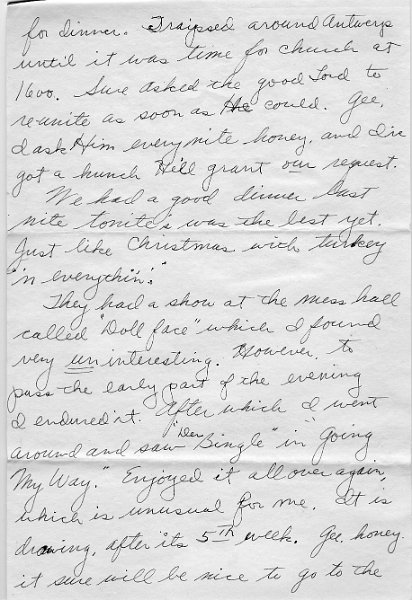 for dinner. Traipsed around Antwerp
until it was time for church at
1600. Sure asked the good Lord to
reunite as soon as He could. Gee,
I ask Him every nite honey, and I've
got a hunch He'll grant our request.
We had a good dinner last
nite tonite's was the best yet.
Just like Christmas with turkey
"n everythin'."
They had a show at the mess hall
called "Doll face" which I found
very un interesting. However, to
pass the early part of the evening
I endured it. After which I went
around and saw "Der Bingle" in "Going
My Way." Enjoyed it all over again,
which is unusual for me. It is
drawing, after its 5th week. Gee, honey
it sure will be nice to go to the